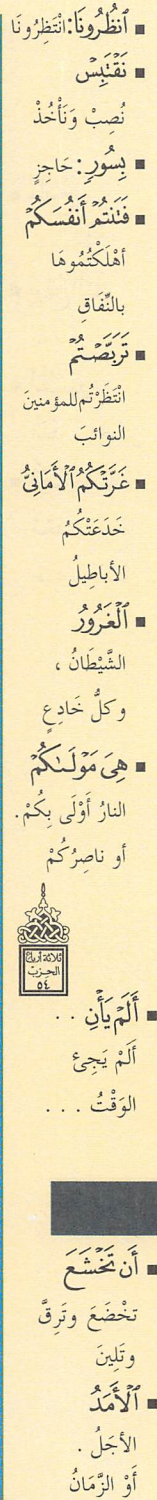 ▪ ٱنظُرُونَا: انْتَظِرُونَا
▪ نَقْتَبِسْ
نُصِبْ وَنَأْخُذْ
▪ بِسُورٍ: حَاجِزٍ
▪ فَتَنتُمْ أَنفُسَكُمْ
أَهْلَكْتُمُوهَا
بالنِّفَاقِ
▪ تَرَبَّصْتُمْ
انْتَظَرْتُم للمؤمنينَ
النوائبَ
▪ غَرَّتْكُمُ ٱلْأَمَانِيُّ
خَدَعَتْكُمُ
الأباطِيلُ
▪ ٱلْغَرُورُ
الشَّيْطَانُ ،
وكلُّ خَادِعٍ
▪ هِىَ مَوْلَىٰكُمْ
النارُ أَوْلَى بِكُمْ .
أو ناصِرُكُمْ
ثلاثة أرباع
الحزب
٥٤
▪ أَلَمْ يَأْنِ . .
أَلَمْ يَجِئ
الوَقْتُ . . .
▪ أَن تَخْشَعَ
تخْضَعَ وتَرِقَّ
وتَلِينَ
▪ ٱلْأَمَدُ
الأجَلُ .
أَوْ الزَّمَانُ